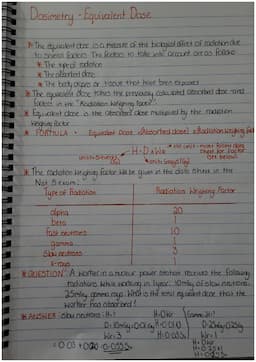 Dosimetry - Equivalent Dose
* The equivalent dose is a measure of the biological effect of radiation due
to several factors. The factors to take into account are as follows:
* The type of radiation
* The absorbed dose
* The body organ or tissue that have been exposed
* The equivalent dose takes the previously calculated absorbed dose and
factors in the "Radiation Weighting Factor".
* Equivalent dose is the absorbed dose multiplied by the radiation
weighting factor
* FORMULA - Equivalent Dose = Absorbed dose x Radiation weighting factor
H = D x WR
* The radiation weighting factor will be given in the data sheet in the
Nat 5 exam:
Type of Radiation Radiation Weighting Factor
alpha 20
beta 1
Fast neutrons 10
gamma 1
Slow neutrons 3
x-rays 1
* QUESTION: A worker in a nuclear power station received the following
radiations while working in 1 year: 10mGy of slow neutrons,
25mGy gamma rays. What is the total equivalent dose that the
worker had absorbed?
* ANSWER: slow neutrons: H=?